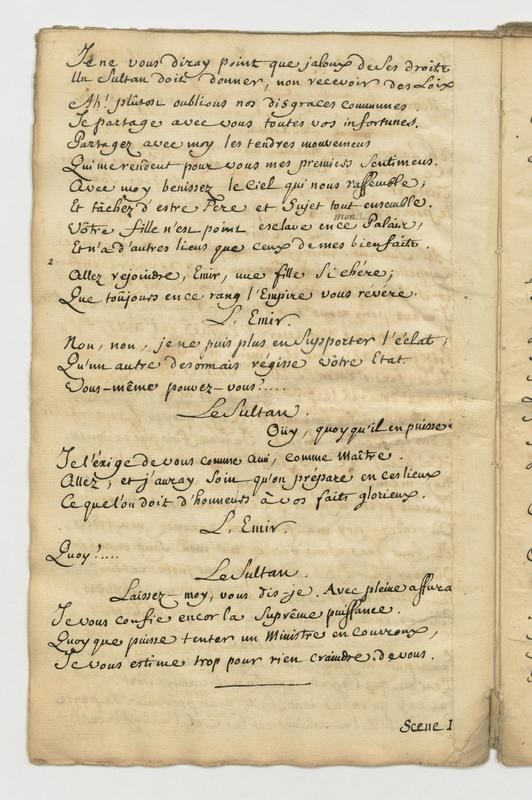 Je ne vous diray point que jaloux de ses droits
Un Sultan doit donner, non recevoir des Loix
Ah! plûtost oublions nos disgraces communes.
Je partage avec vous toutes vos infortunes.
Partagez avec moy les tendres mouvemens
Qui me rendent pour vous mes premiers sentimens.
Avec moy benissez le Ciel qui nous rassemble;
Et tâchez d'estre Pere et Sujet tout ensemble.
mon
Vôtre fille n'est point esclave en ce Palais,
Et n'a d'autres liens que ceux de mes bienfaits.
2
Allez rejoindre, Emir, une fille si chére;
Que toûjours en ce rang l'Empire vous révére.
L'Emir.
Non, non, je ne puis plus en supporter l'éclat;
Qu'un autre desormais régisse vôtre Etat.
Vous-même pouvez-vous?....
Le Sultan.
Oüy, quoy qu'il en puisse
Je l'éxige de vous comme ami, comme Maître.
Allez; et j'auray soin qu'on prépare en ces lieux
Ce que l'on doit d'honneurs à vos faits glorieux.
L'Emir.
Quoy?....
Le Sultan.
Laissez-moy, vous dis-je. Avec pleine assura
Je vous confie encor la Suprême puissance.
Quoy que puisse tenter un Ministre en courroux,
Je vous estime trop pour rien craindre de vous.
Scene I